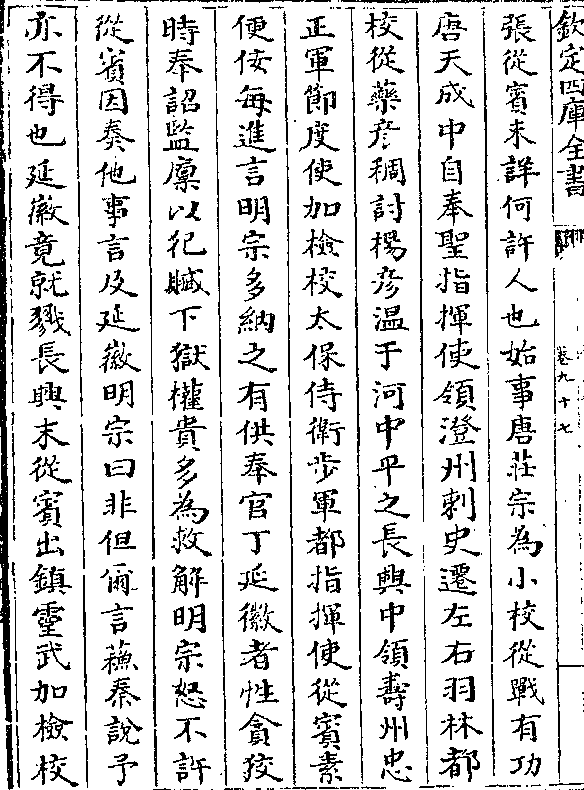 欽定四庫全書
卷九十七
張從賓未詳何許人也始事唐莊宗為小校從戰有功
唐天成中自奉聖指揮使領澄州刺史遷左右羽林都
校從藥彦稠討楊彦温于河中平之長興中領壽州忠
正軍節度使加檢校太保侍衛步軍都指揮使從賓素
便佞每進言明宗多納之有供奉官丁延徽者性貪狡
時奉詔監廪以犯贓下獄權貴多為救解明宗怒不許
從賓因奏他事言及延徽明宗曰非但爾言蘇秦說予
亦不得也延徽竟就戮長興末從賓出鎮靈武加檢校